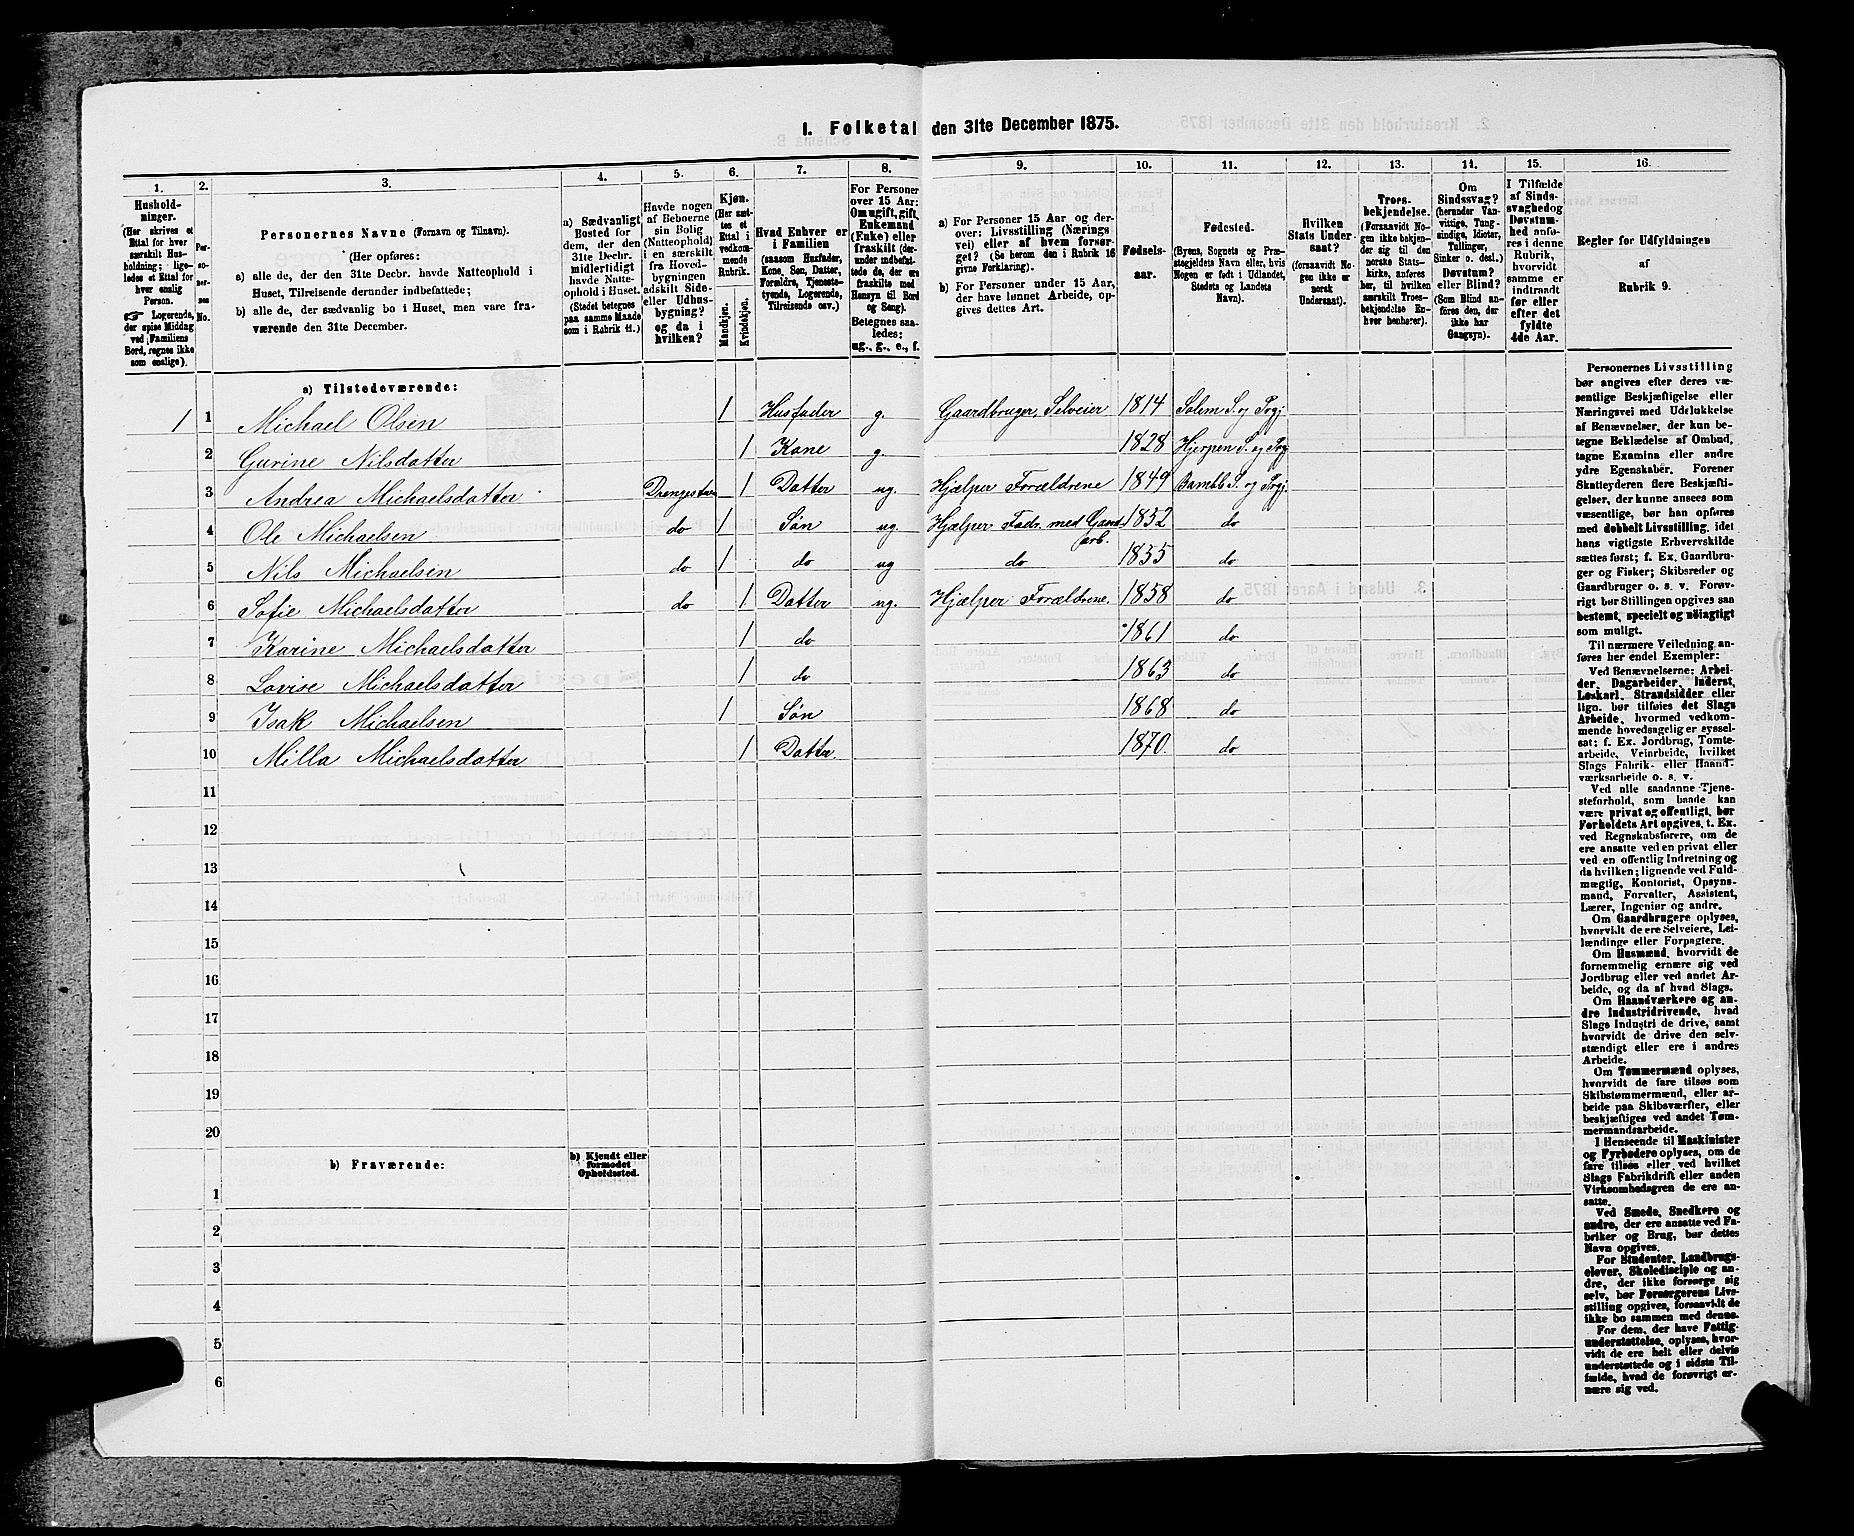 I. Folketal den 31te December 1875.
1. 2. 3. 4. 5. 6. 7. 8. 9. 10. 11. 12. 13. 14. 15. 16.
Hushold-
ninger.
(Her skrives et
Ettal for hver
særskilt Hus-
holdning; lige-
ledes et Ettal for
hver enslig
Person.
☞ Logerende,
der spise Middag
ved Familiens
Bord, regnes ikke
som enslige).
Per-
so-
ner-
nes
No.
Personernes Navne (Fornavn og Tilnavn).
(Her opføres:
a) alle de, der den 31te Decbr. havde Natteophold i
Huset, Tilreisende derunder indbefattede;
b) alle de, der sædvanlig bo i Huset, men vare fra-
værende den 31te December.
a) Sædvanligt
Bosted for
dem, der den
31te Decbr.
midlertidigt
havde Natte-
ophold i Huset.
(Stedet betegnes
paa samme Maade
som i Rubrik 11.)
Havde nogen
af Beboerne
sin Bolig
(Natteophold)
i en særskilt
fra Hoved-
bygningen
adskilt Side-
eller Udhus-
bygning?
og da i
hvilken?
Kjøn.
(Her sæt-
tes et
Ettal i
vedkom-
mende
Rubrik.
Mandkjøn.
Kvindekjøn.
Hvad Enhver er
i Familien
(saasom Husfader,
Kone, Søn, Datter,
Forældre, Tjeneste-
tyende, Logerende,
Tilreisende osv.)
For Personer
over 15 Aar:
Om ugift, gift,
Enkemand
(Enke) eller
fraskilt (der-
under indbefat-
tede de, der ere
fraskilte med
Hensyn til Bord
og Seng).
Betegnes saa-
ledes:
ug., g., e., f.
a) For Personer 15 Aar og der-
over: Livsstilling (Nærings-
vei) eller af hvem forsør-
get? (Se herom den i Rubrik 16
givne Forklaring).
b) For Personer under 15 Aar,
der have lønnet Arbeide, op-
gives dettes Art.
Fødsels-
aar.
Fødested.
(Byens, Sognets og Præ-
stegjeldets Navn eller, hvis
Nogen er født i Udlandet,
Stedets og Landets
Navn).
Hvilken
Stats Under-
saat?
(forsaavidt No-
gen ikke er
norsk
Undersaat).
Troes-
bekjendelse.
(Forsaavidt No-
gen ikke bekjen-
der sig til den
norske Stats-
kirke, anføres
her, til hvilken
særskilt Troes-
bekjendelse En-
hver henhører).
Om
Sindssvag?
(herunder Van-
vittige, Tung-
sindige, Idioter,
Tullinger,
Sinker o. desl.)
Døvstum?
eller Blind?
(Som Blind an-
føres den, der
ikke har
Gangsyn).
I Tilfælde
af Sinds-
svaghed og
Døvstum-
hed anfø-
res i denne
Rubrik,
hvorvidt
samme er
indtraadt
før eller
efter det
fyldte
4de Aar.
Regler for Udfyldningen
af
Rubrik 9.
a) Tilstedeværende:
1 1 Michael Olsen 1 Husfader g. Gaardbruger, Selveier 1814 Solem S. og Prgj.
2 Gurine Nilsdatter 1 Kone g. 1828 Hjerpen S. og Prgj
3 Andrea Michaelsdatter 1 Datter ug. Hjælper Forældrene 1849 Bamble S. og Prgj.
4 Ole Michaelsen do 1 Søn ug. Hjælper Fadr. med Gaards
arb. 1852 do
5 Nils Michaelsen do 1 do ug do 1855 do
6 Sofie Michaelsdatter do 1 Datter ug. Hjælper Forældrene. 1858 do
7 Karine Michaelsdatter 1 do 1861 do
8 Lovise Michaelsdatter 1 do 1863 do
9 Isak Michaelsen 1 Søn 1868 do
10 Milla Michaelsdatter 1 Datter. 1870. do
11
12
13
14
15
16
17
18
19
20
b) Fraværende:
b) Kjendt eller
formodet
Opholdssted.
1
2
3
4
5
6
Personernes Livsstilling
bør angives efter deres væ-
sentlige Beskjæftigelse eller
Næringsvei med Udelukkelse
af Benævnelser, der kun be-
tegne Beklædelse af Ombud,
tagne Examina eller andre
ydre Egenskaber. Forener
Skatteyderen flere Beskjæfti-
gelser, der kunne ansees som
væsentlige, bør han opføres
med dobbelt Livsstilling, idet
hans vigtigste Erhvervskilde
sættes først; f. Ex. Gaardbru-
ger og Fisker; Skibsreder og
Gaardbruger o. s. v. Forøv-
rigt bør Stillingen opgives saa
bestemt, specielt og nøiagtigt
som muligt.
Til nærmere Veiledning an-
føres her endel Exempler:
Ved Benævnelserne: Arbei-
der, Dagarbeider, Inderst,
Løskarl, Strandsidder eller
lign. bør tilføies det Slags
Arbeide, hvormed vedkom-
mende hovedsagelig er syssel-
sat; f. Ex. Jordbrug, Tomte-
arbeide, Veiarbeide, hvilket
Slags Fabrik- eller Haand-
værksarbeide o. s. v.
Ved alle saadanne Tjene-
steforhold, som baade kan
være privat og offentligt, bør
Forholdets Art opgives, t. Ex.
ved Regnskabsførere, om de
ere ansatte ved en privat eller
ved en offentlig Indretning og
da hvilken; lignende ved Fuld-
mægtig, Kontorist, Opsyns-
mand, Forvalter, Assistent,
Lærer, Ingeniør og andre.
Om Gaardbrugere oplyses,
hvorvidt de ere Selveiere, Lei-
lændinge eller Forpagtere.
Om Husmænd, hvorvidt de
fornemmelig ernære sig ved
Jordbrug eller ved andet Ar-
beide, og da af hvad Slags.
Om Haandværkere og an-
dre Industridrivende, hvad
Slags Industri de drive, samt
hvorvidt de drive den selv-
stændigt eller ere i andres
Arbeide.
Om Tømmermænd oplyses,
hvorvidt de fare tilsøs som
Skibstømmermænd, eller ar-
beide paa Skibsværfter, eller
beskjæftiges ved andet Tøm-
mermandsarbeide.
I Henseende til Maskinister
og Fyrbødere oplyses, om de
fare tilsøs eller ved hvilket
Slags Fabrikdrift eller anden
Virksomhedsgren de ere an-
satte.
Ved Smede, Snedkere og
andre, der ere ansatte ved Fa-
briker og Brug, bør dettes
Navn opgives.
For Studenter, Landbrugs-
elever, Skoledisciple og an-
dre, der ikke forsørge sig
selv, bør Forsørgerens Livs-
stilling opgives, forsaavidt de
ikke bo sammen med denne.
For dem, der have Fattig-
understøttelse, oplyses, hvor-
vidt de ere helt eller delvis
understøttede og i sidste Til-
fælde, hvad de forøvrigt er-
nære sig ved.